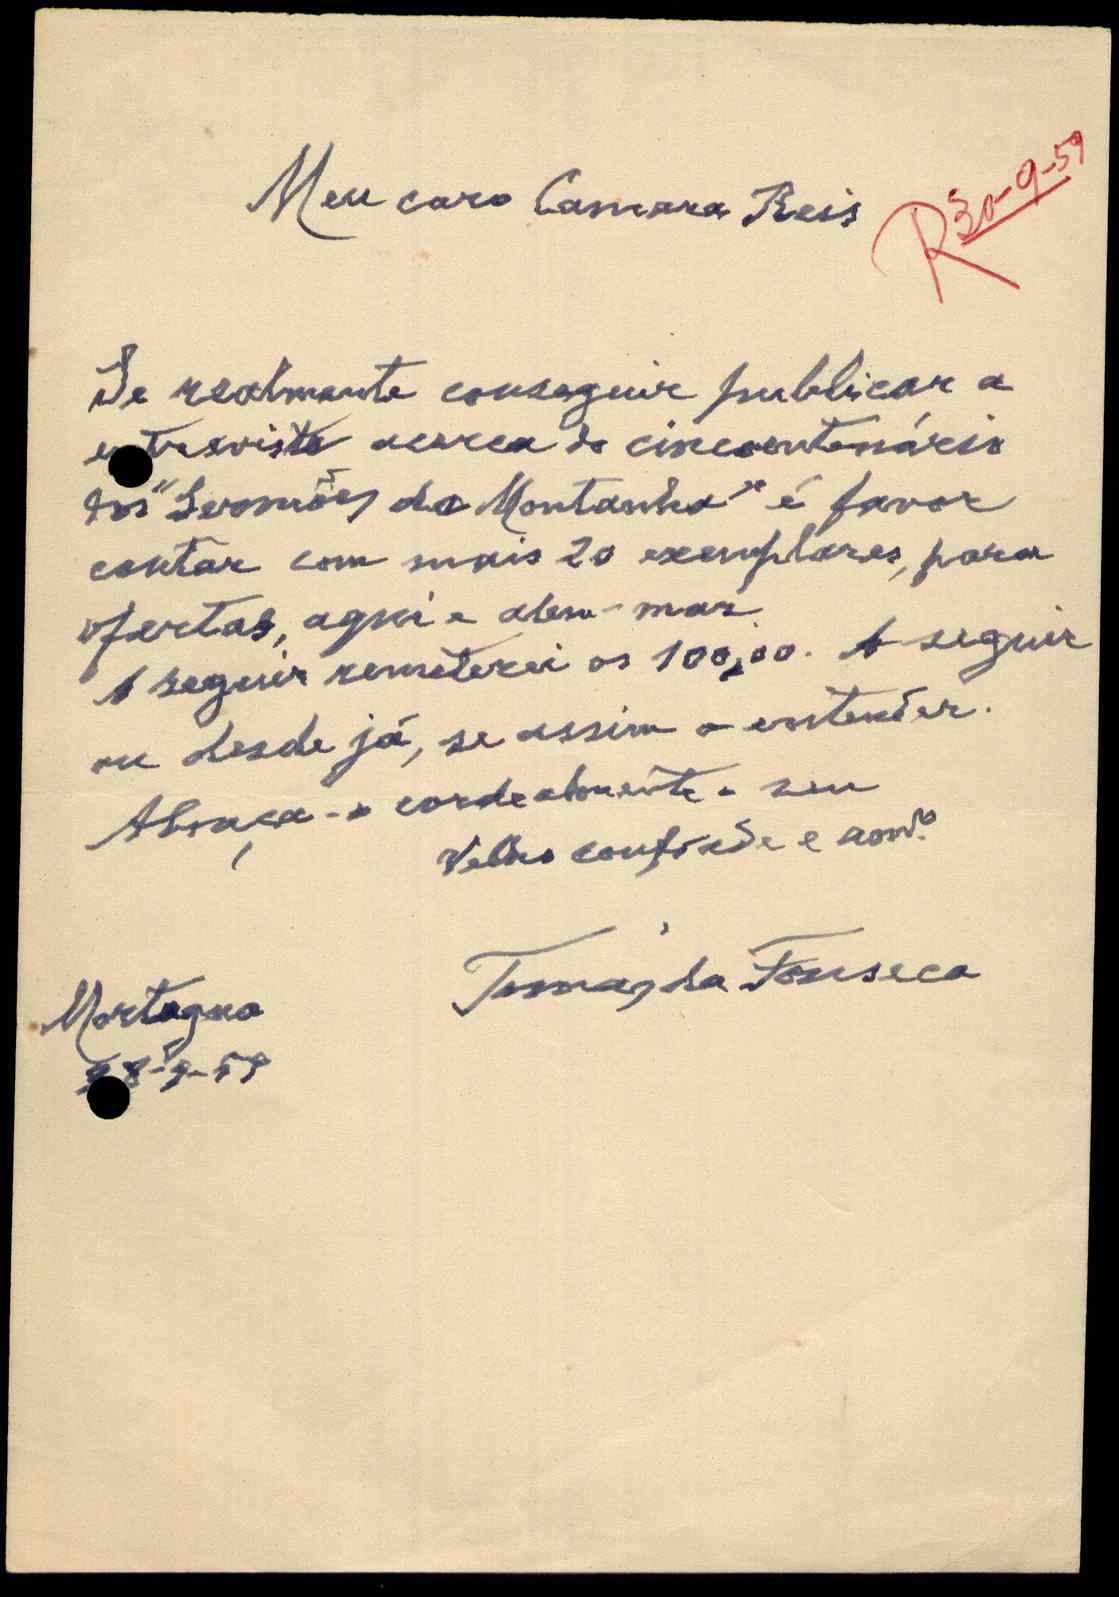 Meu caro Camara Reis
R 30-9-59
Se realmente conseguir publicar a
entrevista acerca do cincoentenário
dos "Sermões da Montanha" é favor
contar com mais 20 exemplares, para
ofertas, aqui e alem-mar.
A seguir remeterei os 100,00. A seguir
ou desde já, se assim o entender.
Abraça-o cordealmente o seu
Velho confrade e admor.
Tomás da Fonseca
Mortagua
28-9-59